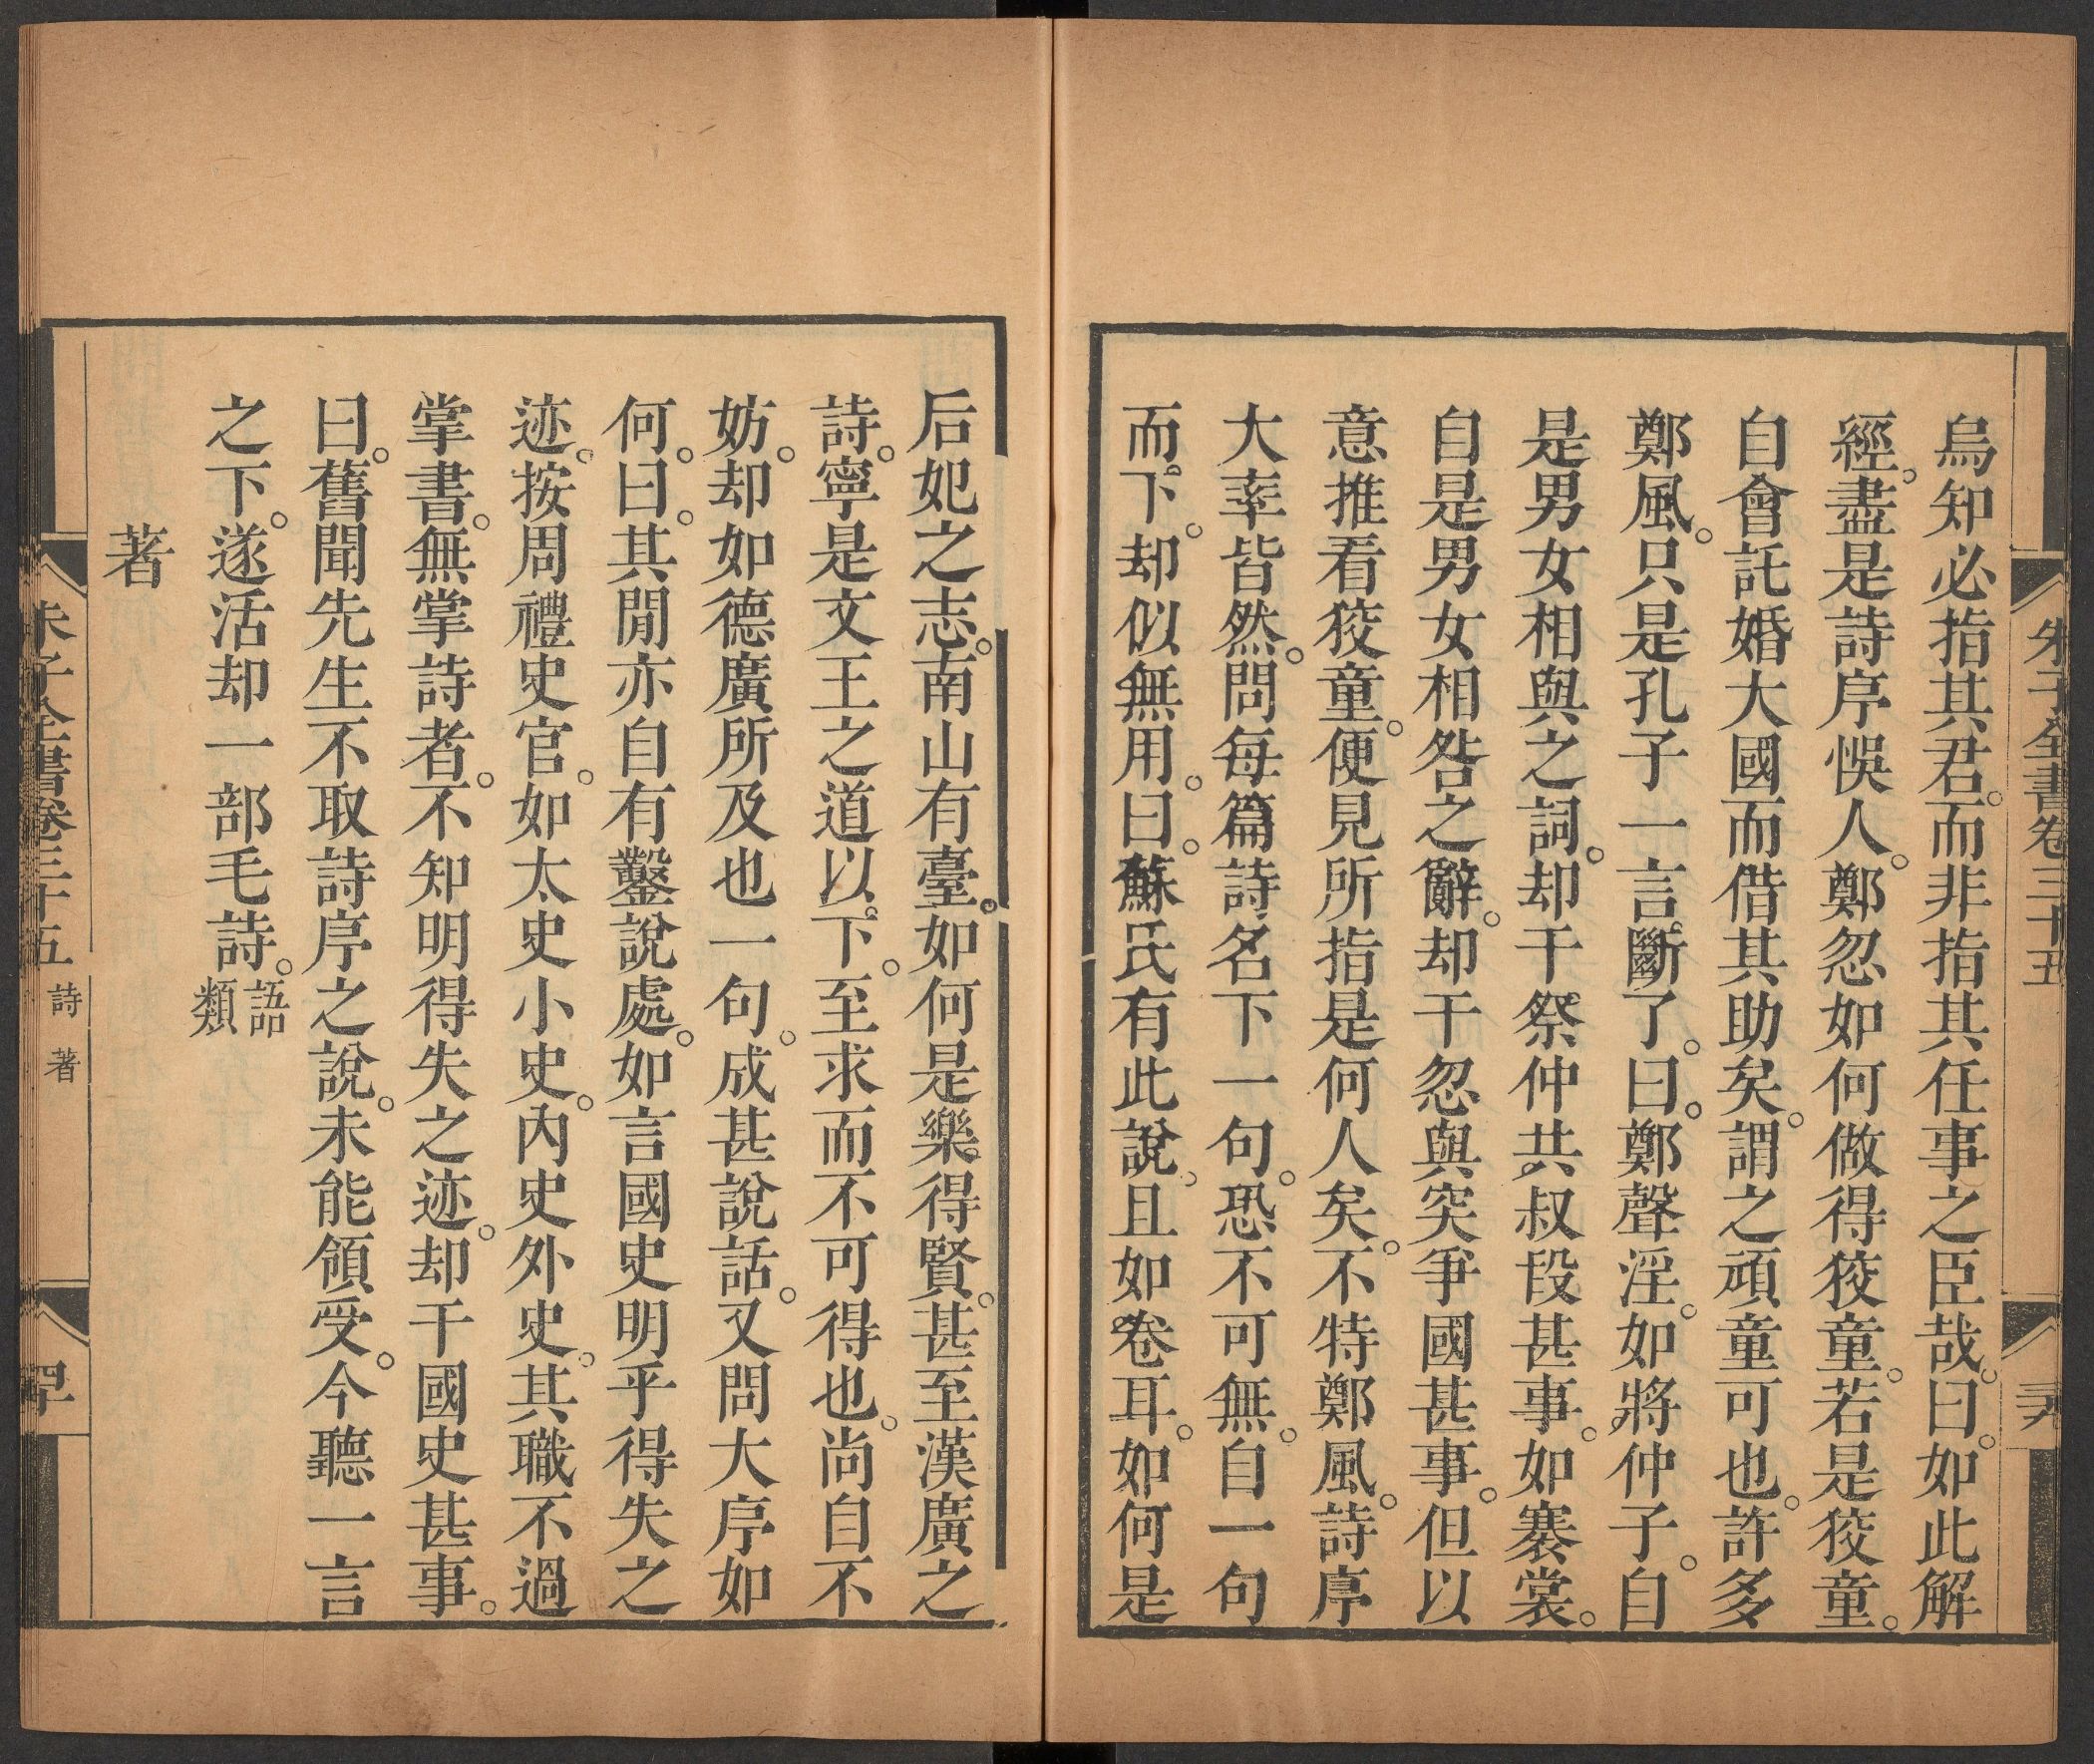 朱子全書卷三十五
烏知必指其君。而非指其任事之臣哉。曰。如此解
經。盡是詩序悞人。鄭忽如何做得狡童。若是狡童。
自會託婚大國而借其助矣。謂之頑童可也。許多
鄭風。只是孔子一言斷了。曰。鄭聲淫。如將仲子。自
是男女相與之詞。却干祭仲共叔段甚事。如褰裳。
自是男女相咎之辭。却干忽與突爭國甚事。但以
意推看狡童。便見所指是何人矣。不特鄭風。詩序
大率皆然。問每篇詩名下一句。恐不可無。自一句
而下。却似無用。曰。蘇氏有此說。且如卷耳。如何是
后妃之志。南山有臺。如何是樂得賢。甚至漢廣之
詩。寧是文王之道以下。至求而不可得也。尚自不
妨。却如德廣所及也一句。成甚說話。又問大序如
何。曰。其閒亦自有鑿說處。如言國史明乎得失之
迹。按周禮史官。如太史小史。內史外史。其職不過
掌書。無掌詩者。不知明得失之迹。却干國史甚事。
曰。舊聞先生不取詩序之說。未能領受。今聽一言
之下。遂活却一部毛詩。語類
著
朱子全書卷三十五 詩 著